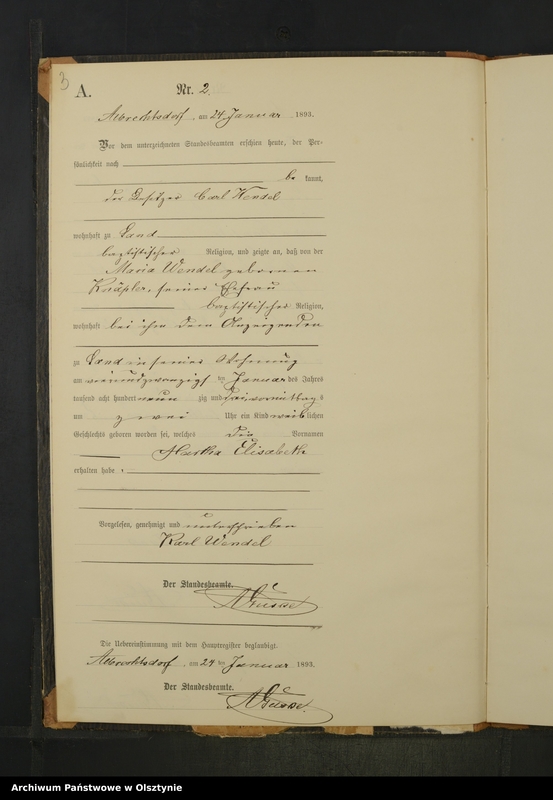 3
A.
Nr. 2.
Albrechtsdorf am 24 Januar 1893.
Vor dem unterzeichneten Standesbeamten erschien heute, der Per-
sönlichkeit nach
be kannt,
der Besitzer Carl Wendel
wohnhaft zu Sand
baptistischer Religion, und zeigte an, daß von der
Maria Wendel geborenen
seiner Ehefrau
baptistischer Religion,
wohnhaft bei ihm dem Anzeigenden
zu Sand in seiner Wohnung
am vierundzwanzigst ten Januar des Jahres
tausend acht hundert neun zig und drei, vormittags
um zwei Uhr ein Kind weib lichen
Geschlechts geboren worden sei, welches die Vornamen
Martha Elisabeth
erhalten habe.
Vorgelesen, genehmigt und unterschrieben
Karl Wendel
Der Standesbeamte.
Die Uebereinstimmung mit dem Hauptregister beglaubigt.
Albrechtsdorf, am 24 ten Januar 1893.
Der Standesbeamte.
Archiwum Państwowe w Olsztynie